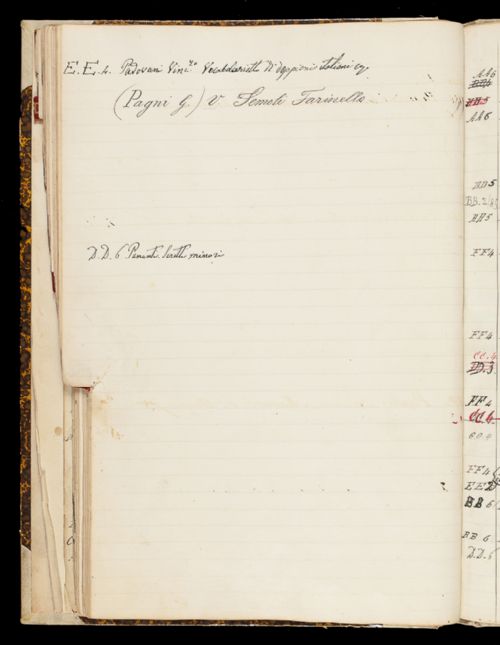 E.E. 4. Padovan Vinc.zo Vocabolarietto di doppioni italiani
(Pagni G.) v. Semeli Farinello
D.D. 6 Parenti Scritti minori
AA6
AA6
BB5
FF4
FF4
CC.4
DD.3
FF4
CC6
FF4
EE2
BB6
BB 6
D.D.